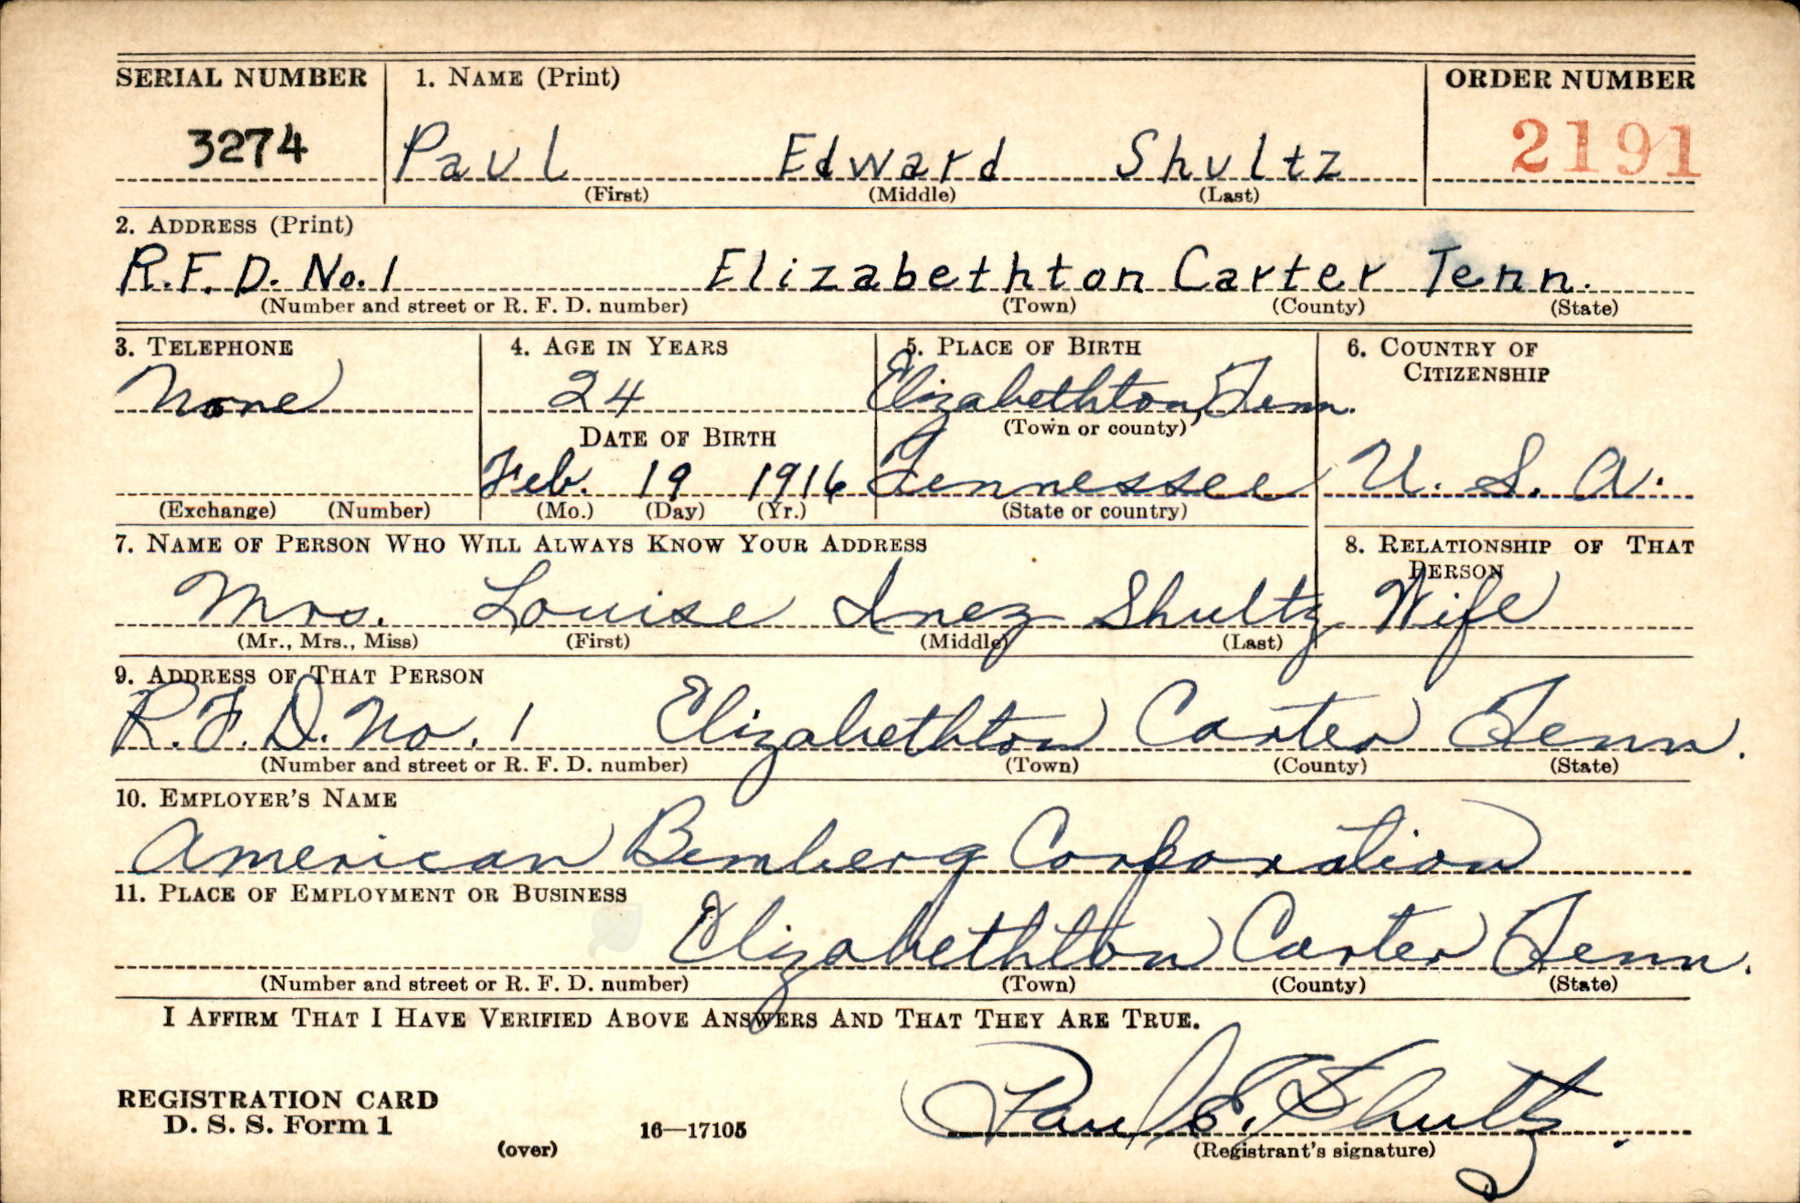 SERIAL NUMBER 1. NAME (Print) ORDER NUMBER
3274 Paul Edward Shultz 2191
(First) (Middle) (Last)
2. ADDRESS (Print)
R.F.D. No. 1 Elizabethton Carter Tenn.
(Number and street or R. F. D. number) (Town) (County) (State)
3. TELEPHONE 4. AGE IN YEARS 5. PLACE OF BIRTH 6. COUNTRY OF
CITIZENSHIP
None 24 Elizabethton, Tenn.
DATE OF BIRTH (Town or county)
Feb. 19 1916 Tennessee U. S. A.
(Exchange) (Number) (Mo.) (Day) (Yr.) (State or country)
7. NAME OF PERSON WHO WILL ALWAYS KNOW YOUR ADDRESS 8. RELATIONSHIP OF THAT
PERSON
Mrs. Louise Inez Shultz Wife
(Mr., Mrs., Miss) (First) (Middle) (Last)
9. ADDRESS OF THAT PERSON
R.F.D. No. 1 Elizabethton Carter Tenn.
(Number and street or R. F. D. number) (Town) (County) (State)
10. EMPLOYER'S NAME
American Bemberg Corporation
11. PLACE OF EMPLOYMENT OR BUSINESS
Elizabethton Carter Tenn.
(Number and street or R. F. D. number) (Town) (County) (State)
I AFFIRM THAT I HAVE VERIFIED ABOVE ANSWERS AND THAT THEY ARE TRUE.
REGISTRATION CARD
D. S. S. Form 1 Paul E. Shultz.
(over) 16—17105 (Registrant's signature)